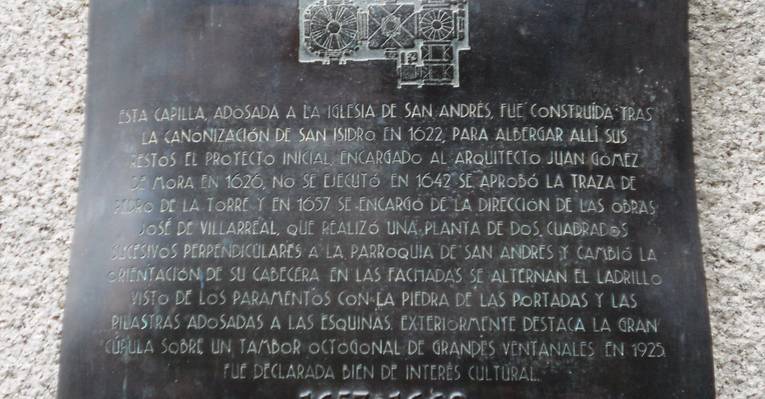 ESTA CAPILLA, ADOSADA A LA IGLESIA DE SAN ANDRÉS, FUE CONSTRUÍDA TRAS
LA CANONIZACIÓN DE SAN ISIDRO EN 1622, PARA ALBERGAR ALLÍ SUS
RESTOS EL PROYECTO INICIAL, ENCARGADO AL ARQUITECTO JUAN GÓMEZ
DE MORA EN 1626, NO SE EJECUTÓ EN 1642 SE APROBÓ LA TRAZA DE
PEDRO DE LA TORRE Y EN 1657 SE ENCARGÓ DE LA DIRECCIÓN DE LAS OBRAS
JOSÉ DE VILLARREAL, QUE REALIZÓ UNA PLANTA DE DOS CUADRADOS
SUCESIVOS PERPENDICULARES A LA PARROQUIA DE SAN ANDRÉS Y CAMBIÓ LA
ORIENTACIÓN DE SU CABECERA EN LAS FACHADAS SE ALTERNAN EL LADRILLO
VISTO DE LOS PARAMENTOS CON LA PIEDRA DE LAS PORTADAS Y LAS
PILASTRAS ADOSADAS A LAS ESQUINAS. EXTERIORMENTE DESTACA LA GRAN
CÚPULA SOBRE UN TAMBOR OCTOGONAL DE GRANDES VENTANALES EN 1925
FUE DECLARADA BIEN DE INTERÉS CULTURAL.